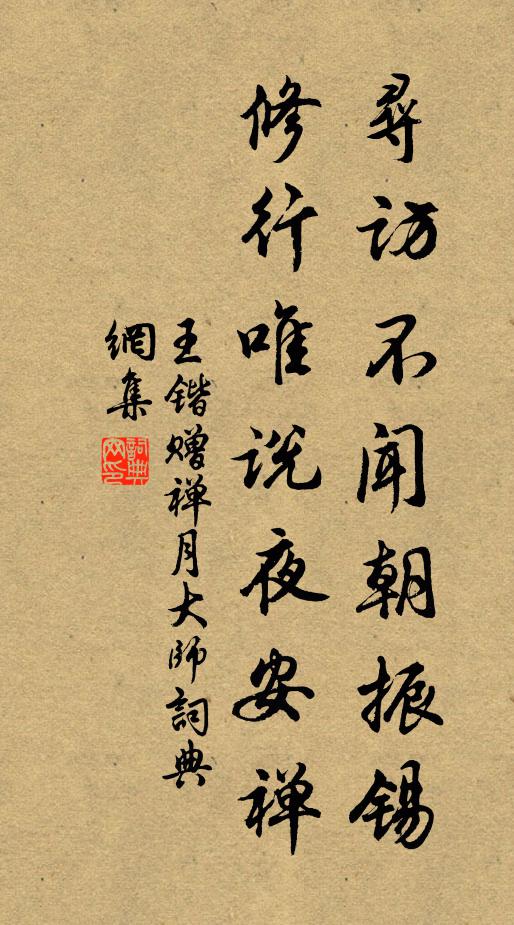 尋访不闻朝振锡
修行唯说夜安禅
王锴赠禅月大师詞典
網集
詞典
网印